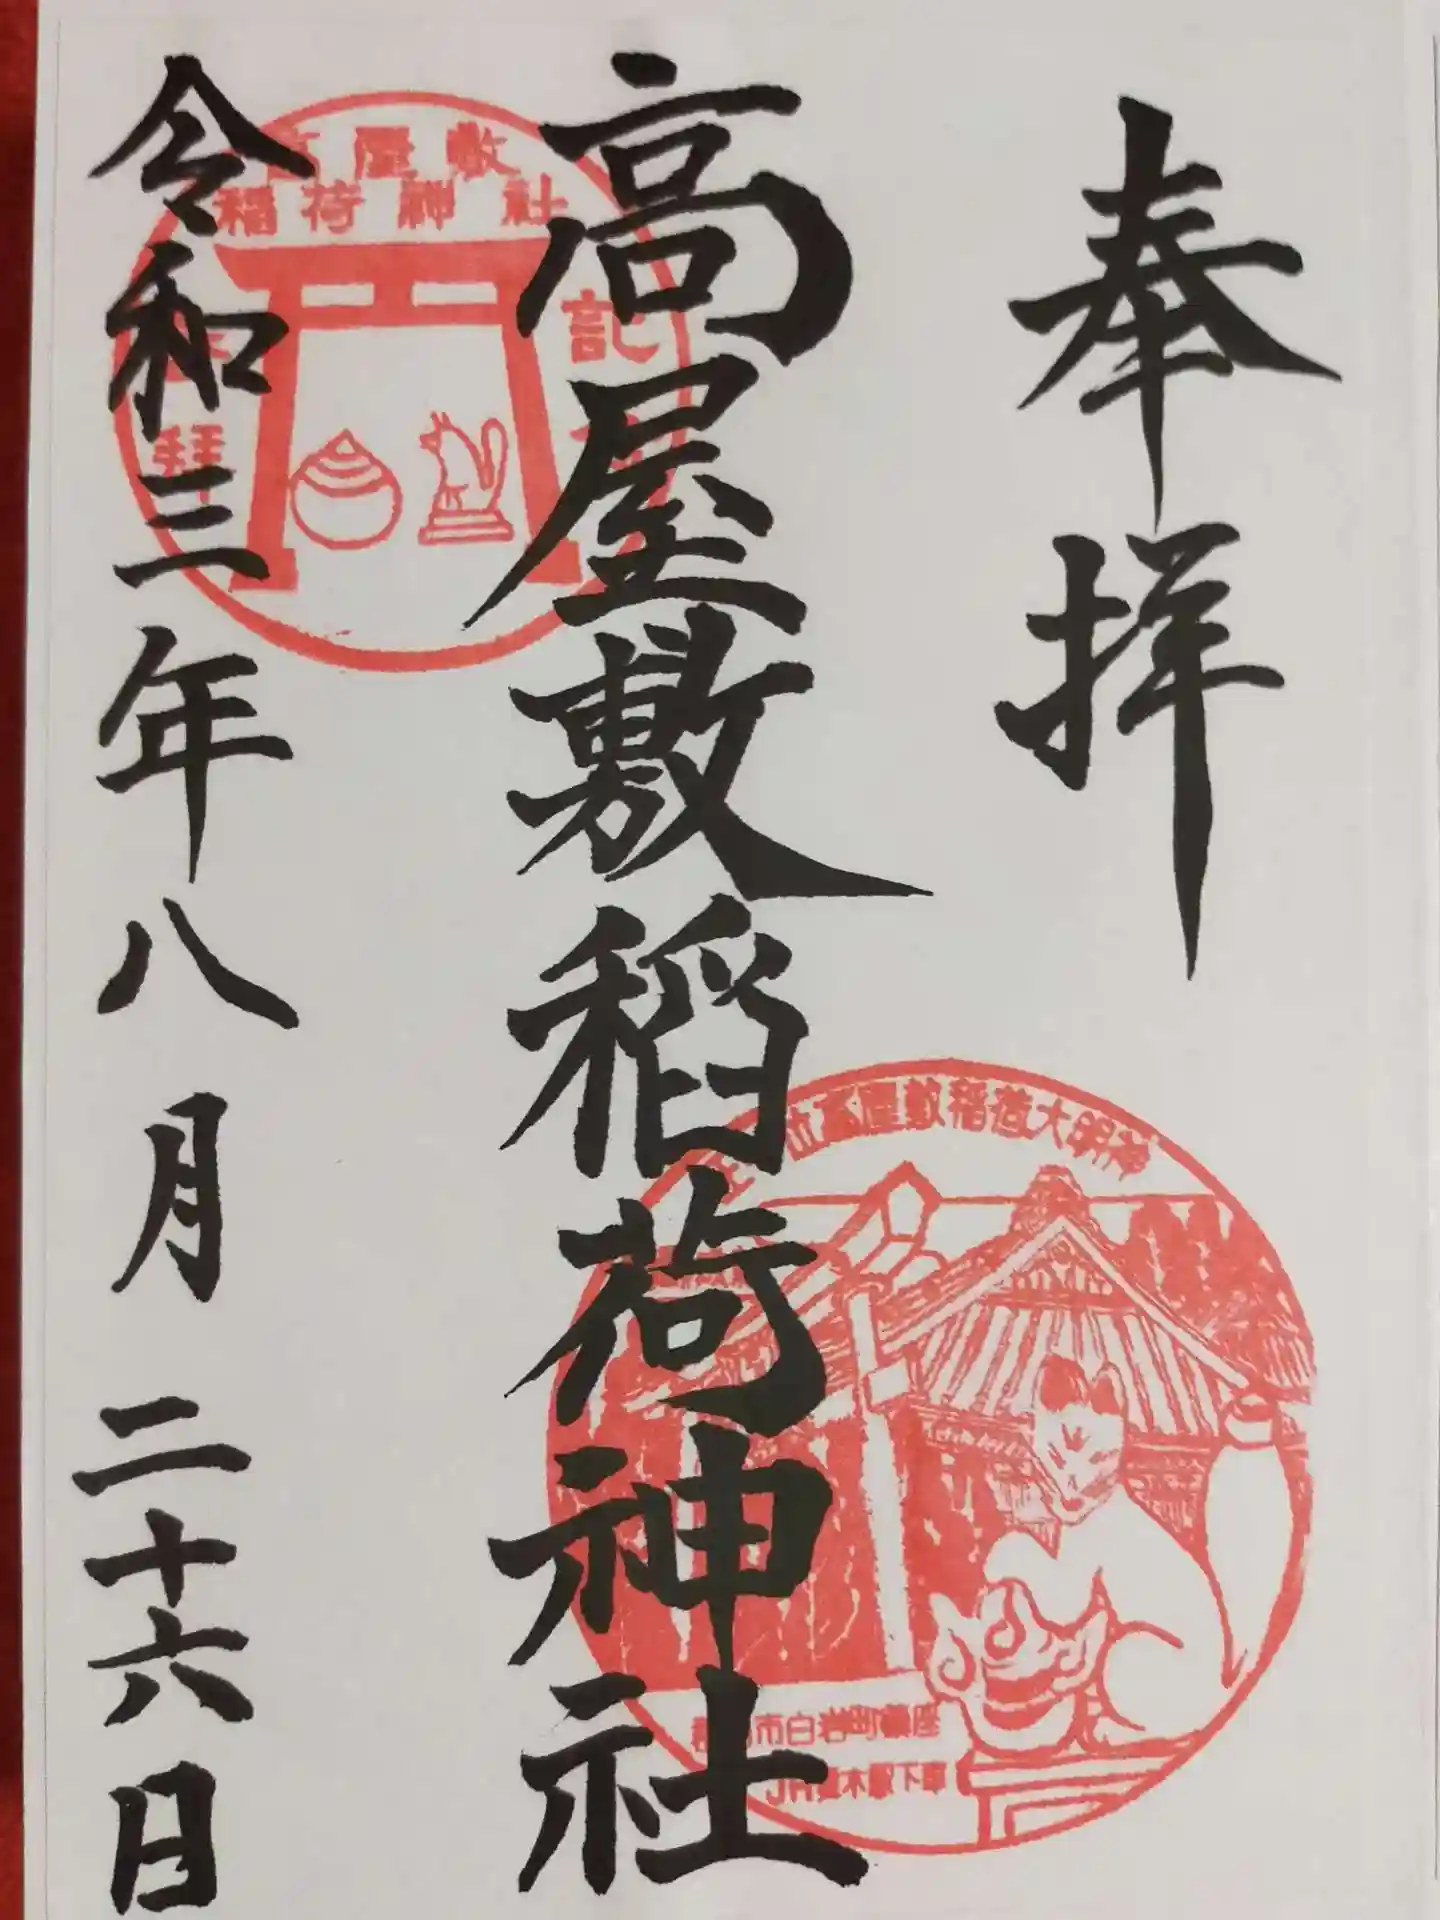 奉拝
高屋敷稲荷神社
令和三年八月二十六日
屋敷
稲荷神社
記
拝
位高屋敷稲荷大明神
市白岩町鎮座
木駅下車